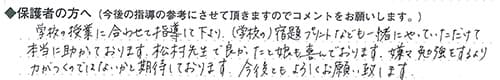 ◆保護者の方へ（今後の指導の参考にさせて頂きますのでコメントをお願いします。）
学校の授業に合わせて指導して下さり、(学校の)宿題プリントなども一緒にやっていただけて
本当に助かっております。松村先生で良かったと娘も喜んでおります。嫌々勉強をするより
力がつくのではないかと期待しております。今後ともよろしくお願い致します。